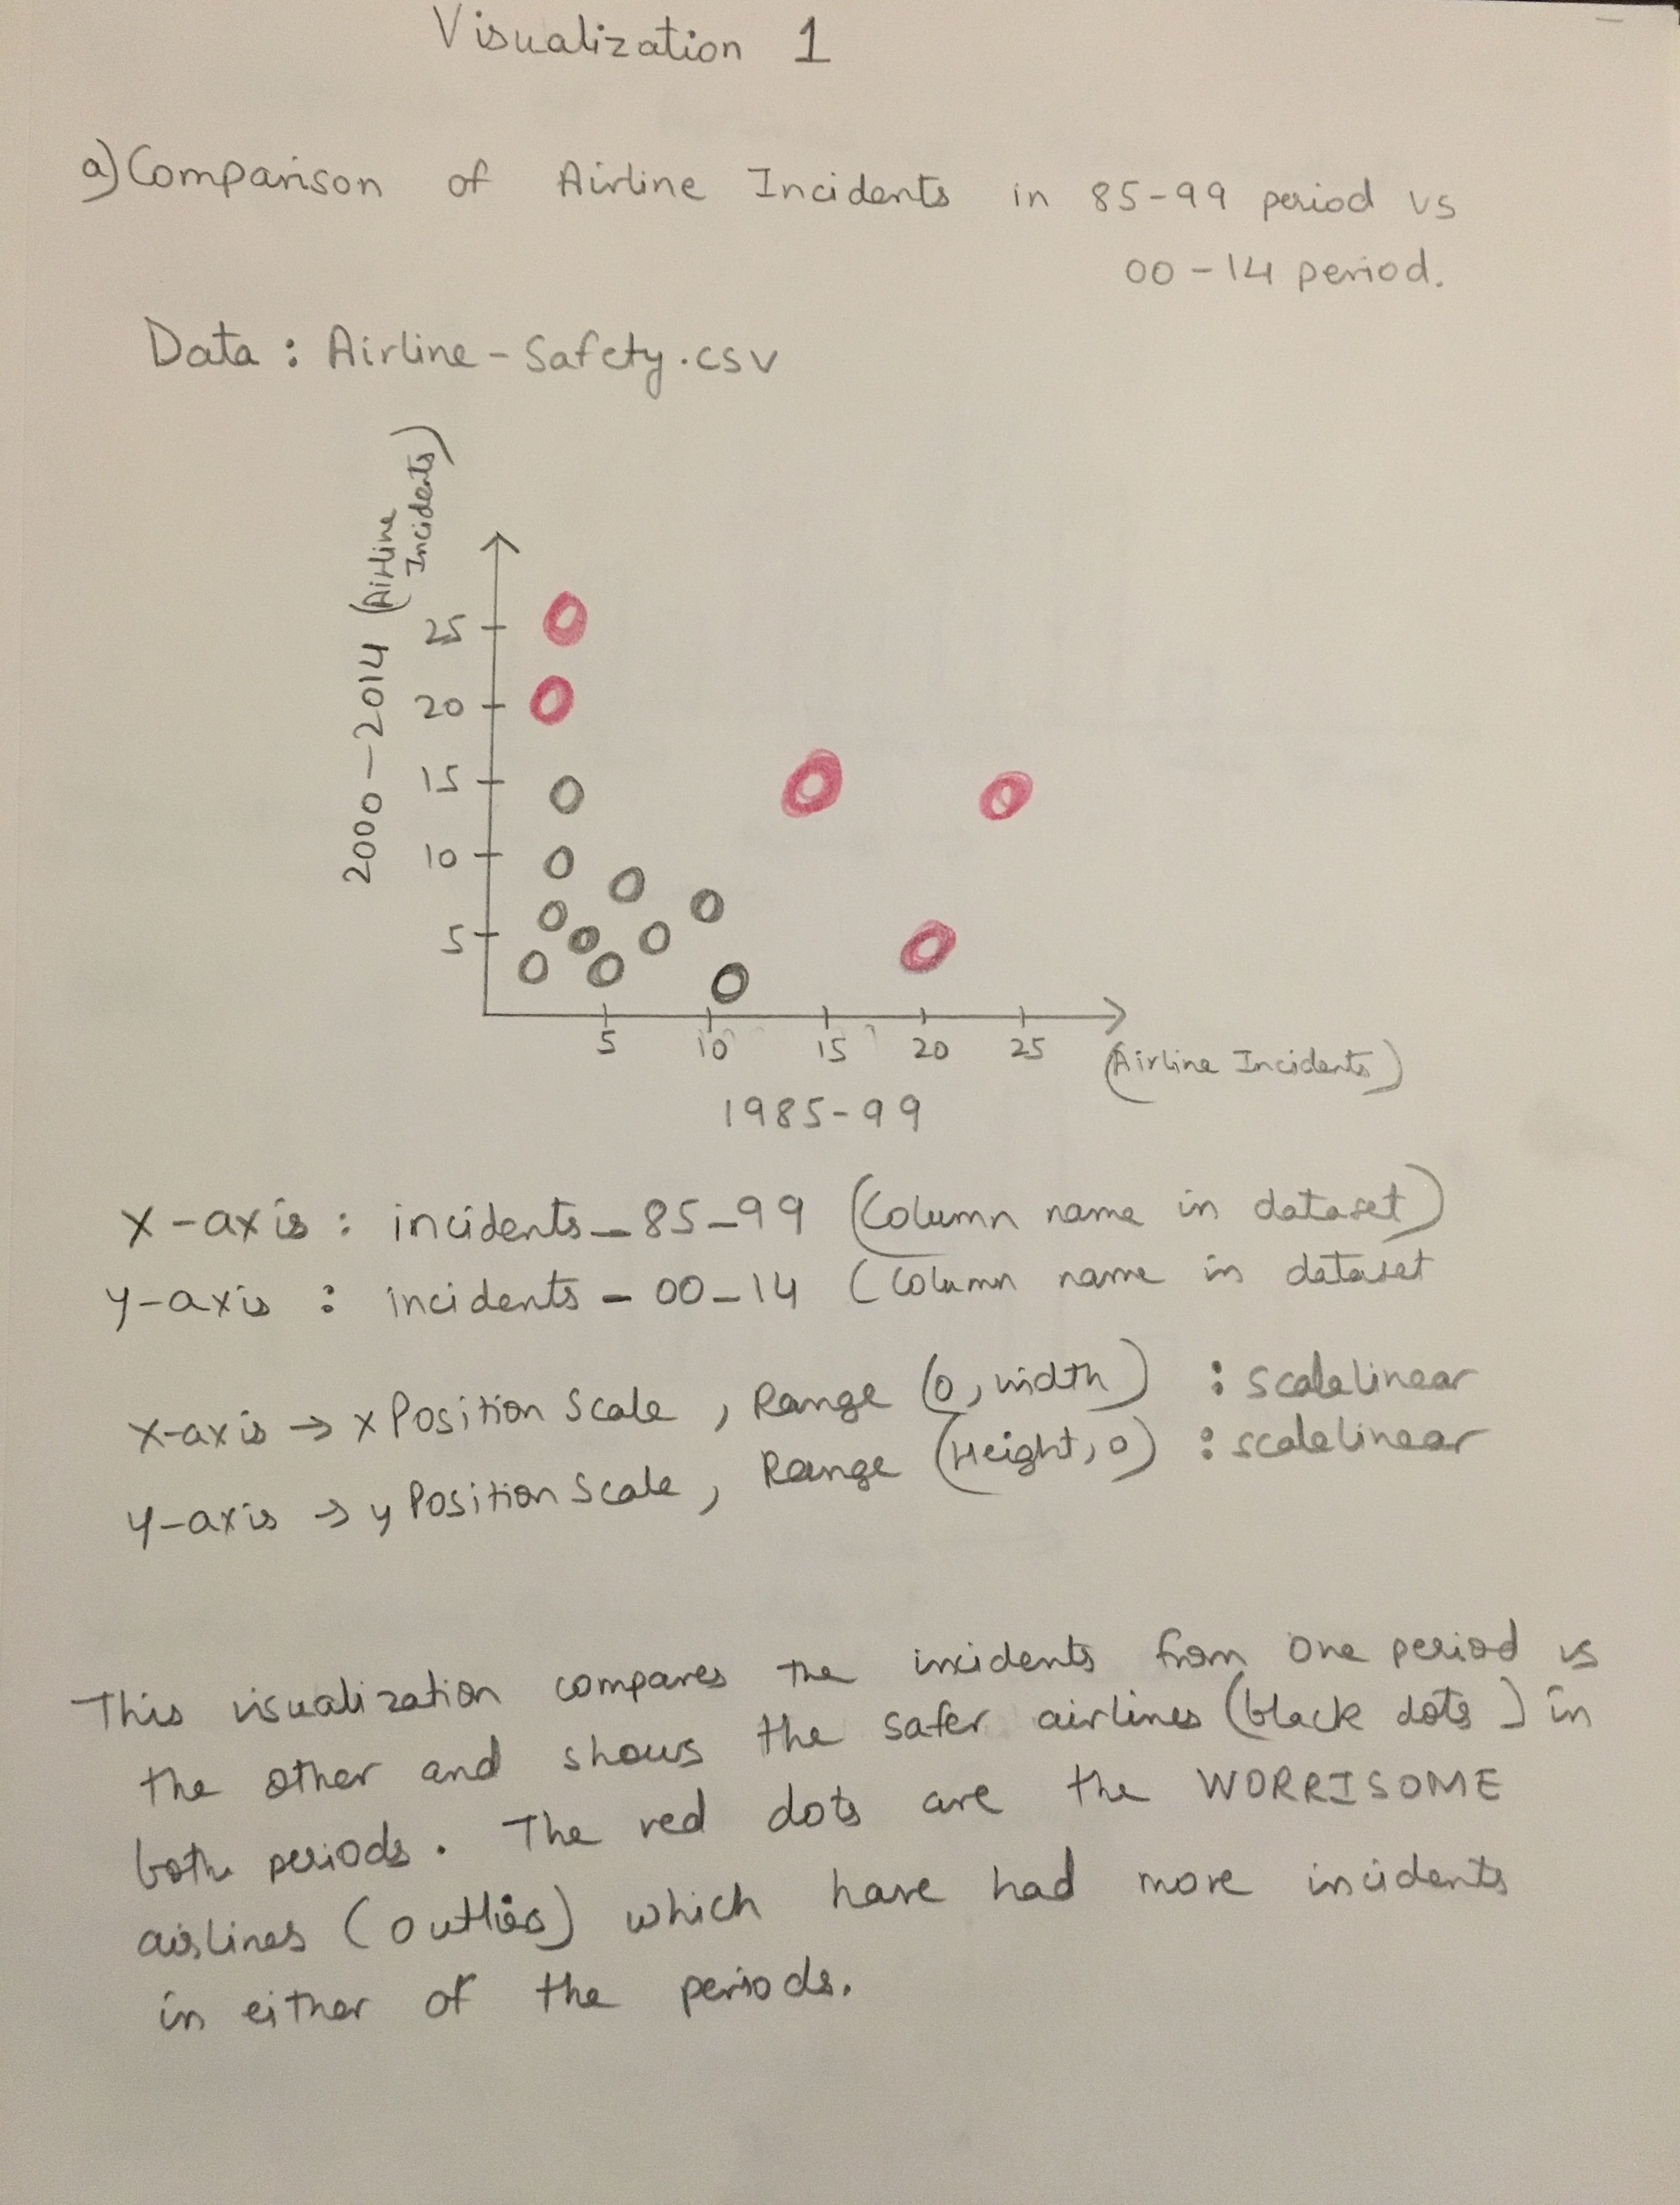 Visualization 1
a) Comparison of Airline Incidents in 85-99 period vs
00-14 period.
Data : Airline-Safety.csv
2000-2014 (Airline
Incidents)
25
20
15
10
5
5 10 15 20 25
(Airline Incidents)
1985-99
X-axis : incidents_85_99 (Column name in dataset)
y-axis : incidents_00_14 (Column name in dataset
X-axis → x Position Scale , Range (0, width) : scaleLinear
y-axis → y Position Scale , Range (Height, 0) : scaleLinear
This visualization compares the incidents from one period vs
the other and shows the safer airlines (black dots) in
both periods. The red dots are the WORRISOME
airlines (outliers) which have had more incidents
in either of the periods.